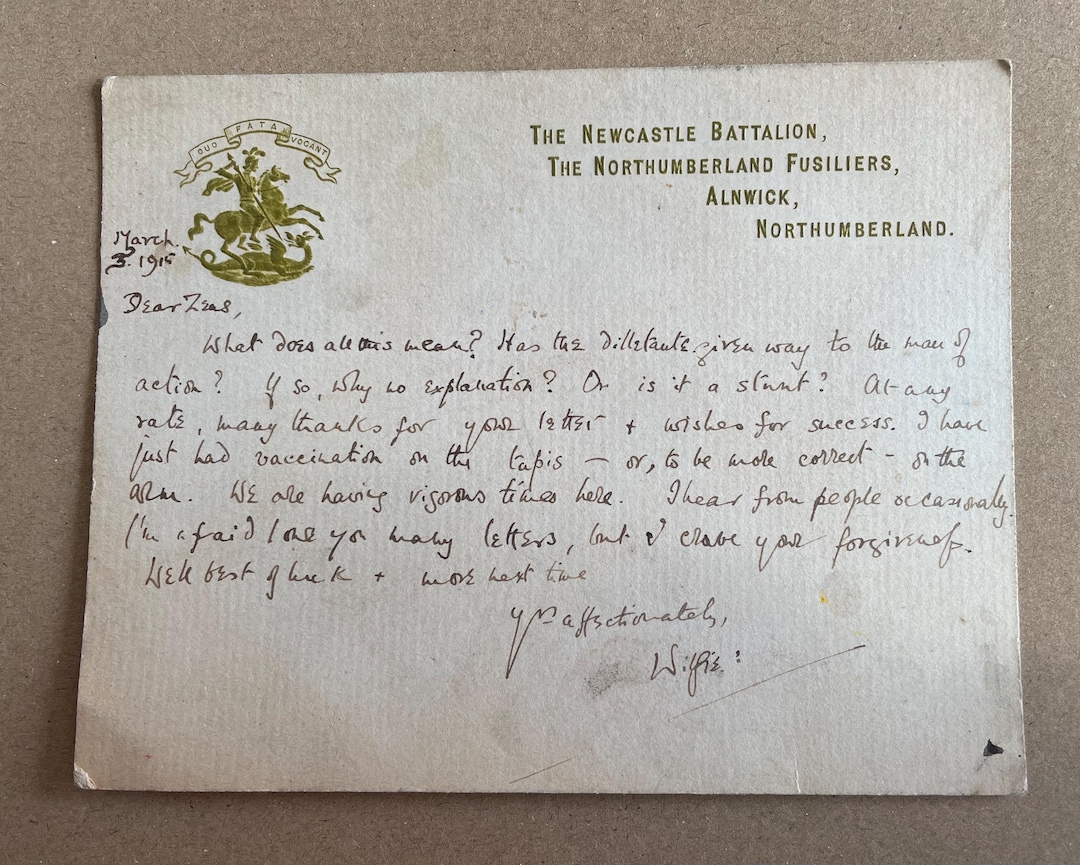 QUO FATA VOCANT
THE NEWCASTLE BATTALION,
THE NORTHUMBERLAND FUSILIERS,
ALNWICK,
NORTHUMBERLAND.
March.
3. 1915
Dear Zeus,
What does all this mean? Has the dilletante given way to the man of
action? If so, why no explanation? Or is it a stunt? At any
rate, many thanks for your letter + wishes for success. I have
just had vaccination on the tapis – or, to be more correct – on the
arm. We are having rigorous times here. I hear from people occasionally.
I'm afraid I owe you many letters, but I crave your forgiveness.
Well best of luck + more next time
Yrs affectionately,
Wilfie: